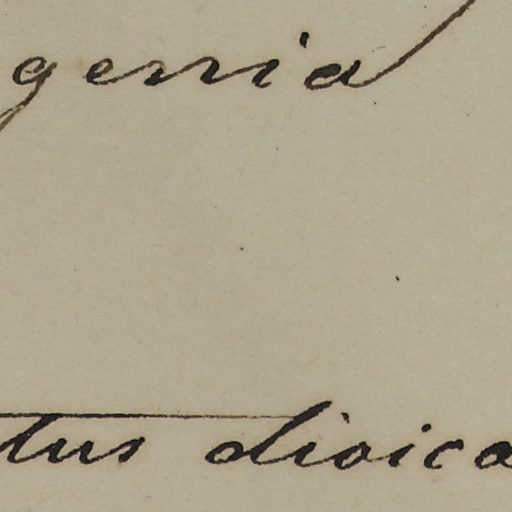 genia
tus dioica